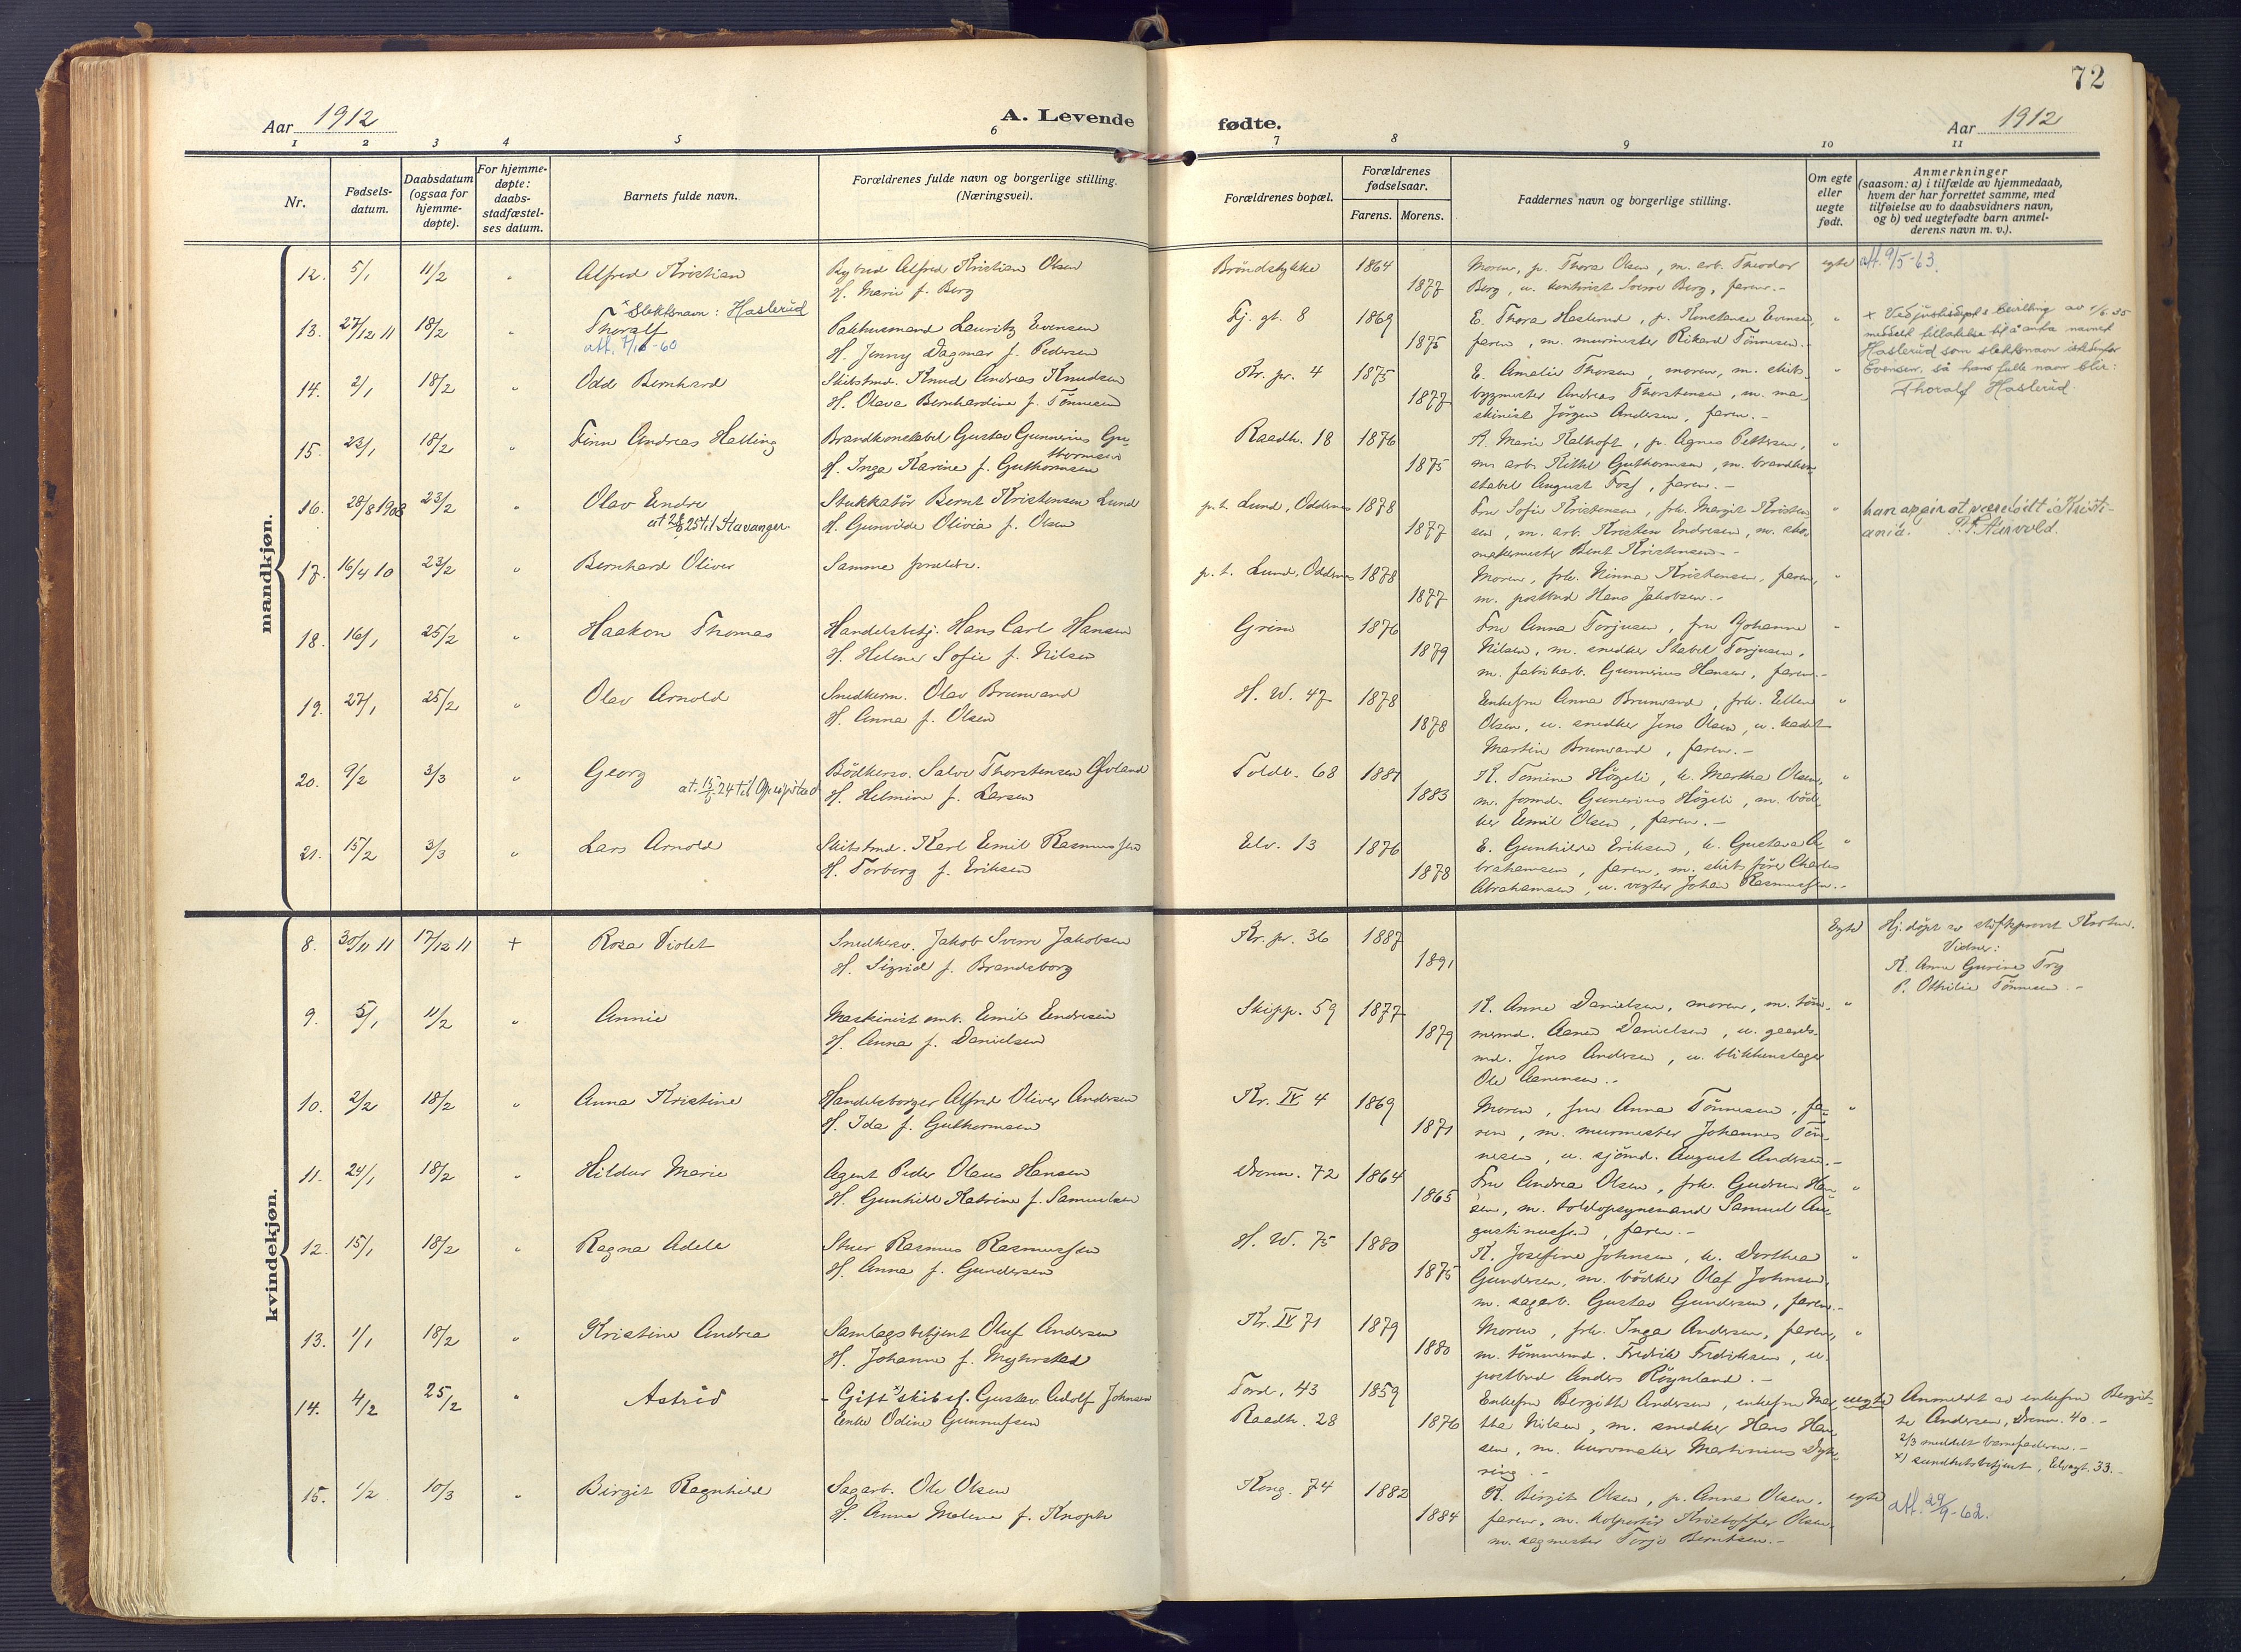 72
Aar 1912
A. Levende
fødte.
Aar 1912
1 2 3 4 5 6 7 8 9 10 11
Nr.
Fødsels-
datum.
Daabsdatum
(ogsaa for
hjemme-
døpte).
For hjemme-
døpte:
daabs-
stadfæstel-
ses datum.
Barnets fulde navn.
Forældrenes fulde navn og borgerlige stilling.
(Næringsvei).
Forældrenes bopæl.
Forældrenes
fødselsaar.
Farens. Morens.
Faddernes navn og borgerlige stilling.
Om egte
eller
uegte
født.
Anmerkninger
(saasom: a) i tilfælde av hjemmedaab,
hvem der har forrettet samme, med
tilføielse av to daabsvidners navn,
og b) ved uegtefødte barn anmel-
derens navn m. v.).
mandkjøn.
12. 5/1 11/2 " Alfred Kristian
Bybud Alfred Kristian Olsen
H. Marie f. Berg
Bröndstykke 1864
1877
Moren, p. Thora Olsen, m. arb. Theodor
Berg, u. kontorist Sverre Berg, faren.-
egte att. 9/5-63.
13. 27/12 11 18/2 "
x Slektsnavn: Haslerud
Thoralf
att. 7/10-60
Pakhusmand Lauritz Evensen
H. Jenny Dagmar f. Pedersen
Fj. gt. 8 1869
1875
E. Thora Haslerud, p. Konstanse Evensen,
faren, m. murmester Rikard Tönnesen.-
"
x Ved justisdepts bevilling av 1/6 35
meddelt tillatelse til å anta navnet
Haslerud som slektsnavn istedenfor
Evensen, så hans fulle navn blir:
Thoralf Haslerud.
14. 2/1 18/2 " Odd Bernhard
Skibstmd. Knud Andreas Knudsen
H. Olava Bernhardine f. Tönnesen
Kr. pr. 4 1875
1877
E. Amalie Thorsen, moren, m. skibs-
bygmester Andreas Thorstensen, m. ma-
skinist Jörgen Andersen, faren.-
"
15. 23/1 18/2 " Finn Andreas Helling
Brandkonstabel Gustav Gunnerius Gu-
thormsen
H. Inga Karine f. Guthormsen
Raadh. 18 1876
1875
K. Marie Kalhoft, p. Agnes Pettersen,
m. arb. Kittel Guthormsen, m. brandkon-
stabel August Foss, faren.-
"
16. 28/8 1908 23/2 " Olav Endre
Stukkatör Bernt Kristensen Lund
H. Gunvilde Olivia f. Olsen
p.t. Lund, Oddernes 1878
1877
Fru Sofie Kristensen, frk. Margit Kristen-
sen, m. arb. Kristen Endresen, m. sko-
makermester Bent Kristensen.-
"
han angir at være födt i Kristi-
ania.
17. 16/4 10 23/2 " Bernhard Oliver
Samme forældre.
p.t. Lund, Oddernes 1878
1877
Moren, frk. Ninna Kristensen, faren,
m. postbud Hans Jakobsen.-
"
18. 16/1 25/2 " Haakon Thomas
Handelsbetj. Hans Carl Hansen
H. Helene Sofie f. Nilsen
Grim 1876
1879
Fru Anna Torjusen, fru Johanne
Nilsen, m. snedker Stabel Torjusen,
m. fabrikarb. Gunnerius Hansen, faren.-
"
19. 27/1 25/2 " Olav Arnold
Snedkerm. Olav Brunvand
H. Anna f. Olsen
H. W. 47 1878
1878
Enkefru Anna Brunvand, frk. Ellen
Olsen, u. snedker Jens Olsen, u. kadet
Martin Brunvand, faren.-
"
20. 9/2 3/3 " Georg
Bödkersv. Salve Thorstensen Övland
H. Helmine f. Larsen
Toldb. 68 1881
1883
K. Tomine Högeli, k. Martha Olsen,
m. formd. Gunerius Högeli, m. böd-
ker Emil Olsen, faren.-
"
21. 15/2 3/3 " Lars Arnold
Skibstmd. Karl Emil Rasmussen
H. Torborg f. Eriksen
Elv. 13 1876
1878
E. Gunhilde Eriksen, k. Gustava A-
brahamsen, faren, m. skibsförer Charles
Abrahamsen, u. vegter Johan Rasmussen.-
"
kvindekjøn.
8. 30/11 11 17/12 11 + Rosa Violet
Snedkersv. Jakob Sverre Jakobsen
H. Sigrid f. Brandsborg
Kr. pr. 36 1887
1891
Egte
Hj. döpt av stiftsprovst
Vidner:
K. Anna Gurine Try
P. Othilie Tönnesen.-
9. 5/1 11/2 " Annie
Maskinist Emil Endresen
H. Anna f. Danielsen
Skipp. 59 1877
1879
K. Anne Danielsen, moren, m. töm-
mermd. Aanen Danielsen, u. gaards-
md. Jens Andersen, u. blikkenslager
Ole Aanensen.-
"
10. 2/2 18/2 " Anna Kristine
Handelsborger Alfred Oliver Andersen
H. Ida f. Guthormsen
Kr. IV 4 1869
1871
Moren, fru Anna Tönnesen, fa-
ren, m. murmester Johannes Tön-
nesen, u. sjömd. August Andersen.-
"
11. 24/1 18/2 " Hildur Marie
Agent Peder Olaus Hansen
H. Gunhild Katrine f. Samuelsen
Dronn. 72 1864
1865
Fru Andrea Olsen, frk. Gudrun Han-
sen, m. toldopsynsmand Samuel Au-
gustinussen, faren.-
"
12. 15/1 18/2 " Ragna Adele
Stuer Rasmus Rasmussen
H. Anna f. Gundersen
H. W. 75 1880
1875
K. Josefine Johnsen, k. Dorthea
Gundersen, m. bödker Olaf Johnsen,
m. sagarb. Gustav Gundersen, faren.-
"
13. 1/1 18/2 " Kristine Andrea
Samlagsbetjent Oluf Andersen
H. Johanne f. Myhrstad
Kr. IV 71 1879
1880
Moren, frk. Inga Andersen, faren,
m. tömmermd. Fredrik Fredriksen, u.
postbud Anders Röynland.-
"
14. 4/2 25/2 " Astrid
- Gift x) skibst. Gustav Adolf Johnsen
Enke Odine Gunnufsen
Tord. 43 1859
Raadh. 28 1876
Enkefru Bergitte Andersen, enkefru Mar-
tha Nilsen, m. snedker Hans Han-
sen, m. kurvmaker Martinius Dyb-
ring.-
uegte
Anmeldt av enkefru Bergit-
te Andersen, Dronn. 40.-
2/3 meddelt barnefaderen.-
x) sundhetsbetjent, Elvegt. 33.-
15. 1/2 10/3 " Birgit Ragnhild
Sagarb. Ole Olsen
H. Anna Malene f. Knoph
Kong. 74 1882
1884
K. Birgit Olsen, p. Anna Olsen,
faren, m. kolportör Kristoffer Olsen,
m. sagmester Torje Berntsen.-
egte
att. 29/9-62.